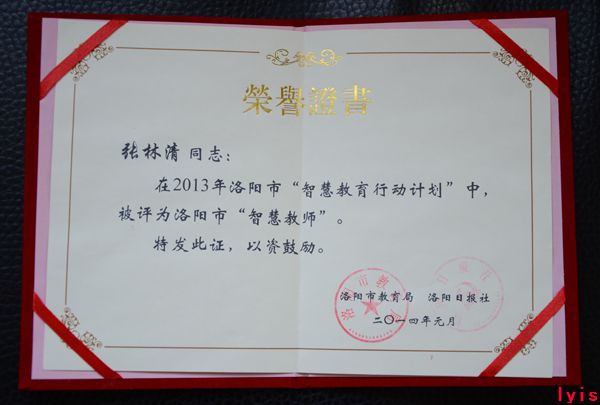 榮譽證書
张林清 同志：
在2013年洛阳市“智慧教育行动计划”中，
被评为洛阳市“智慧教师”。
特发此证，以资鼓励。
洛阳市教育局 洛阳日报社
二〇一四年元月
lyis